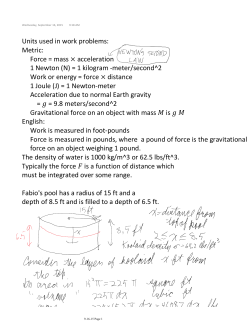 Units used in work problems:
Metric:
NEWTON'S SECOND
LAW
Force = mass × acceleration
1 Newton (N) = 1 kilogram -meter/second^2
Work or energy = force × distance
1 Joule (J) = 1 Newton-meter
Acceleration due to normal Earth gravity
= g = 9.8 meters/second^2
Gravitational force on an object with mass M is g M
English:
Work is measured in foot-pounds
Force is measured in pounds, where a pound of force is the gravitational
force on an object weighing 1 pound.
The density of water is 1000 kg/m^3 or 62.5 lbs/ft^3.
Typically the force F is a function of distance which
must be integrated over some range.
Fabio's pool has a radius of 15 ft and a
depth of 8.5 ft and is filled to a depth of 6.5 ft.
15 ft
x = distance from
top of pool
2 ≤ x ≤ 8.5
6.5
x
Koolaid density
Consider the layers of koolaid x ft from
the top
area is π 15² = 225 π square ft
volume 225 π dx cubic ft